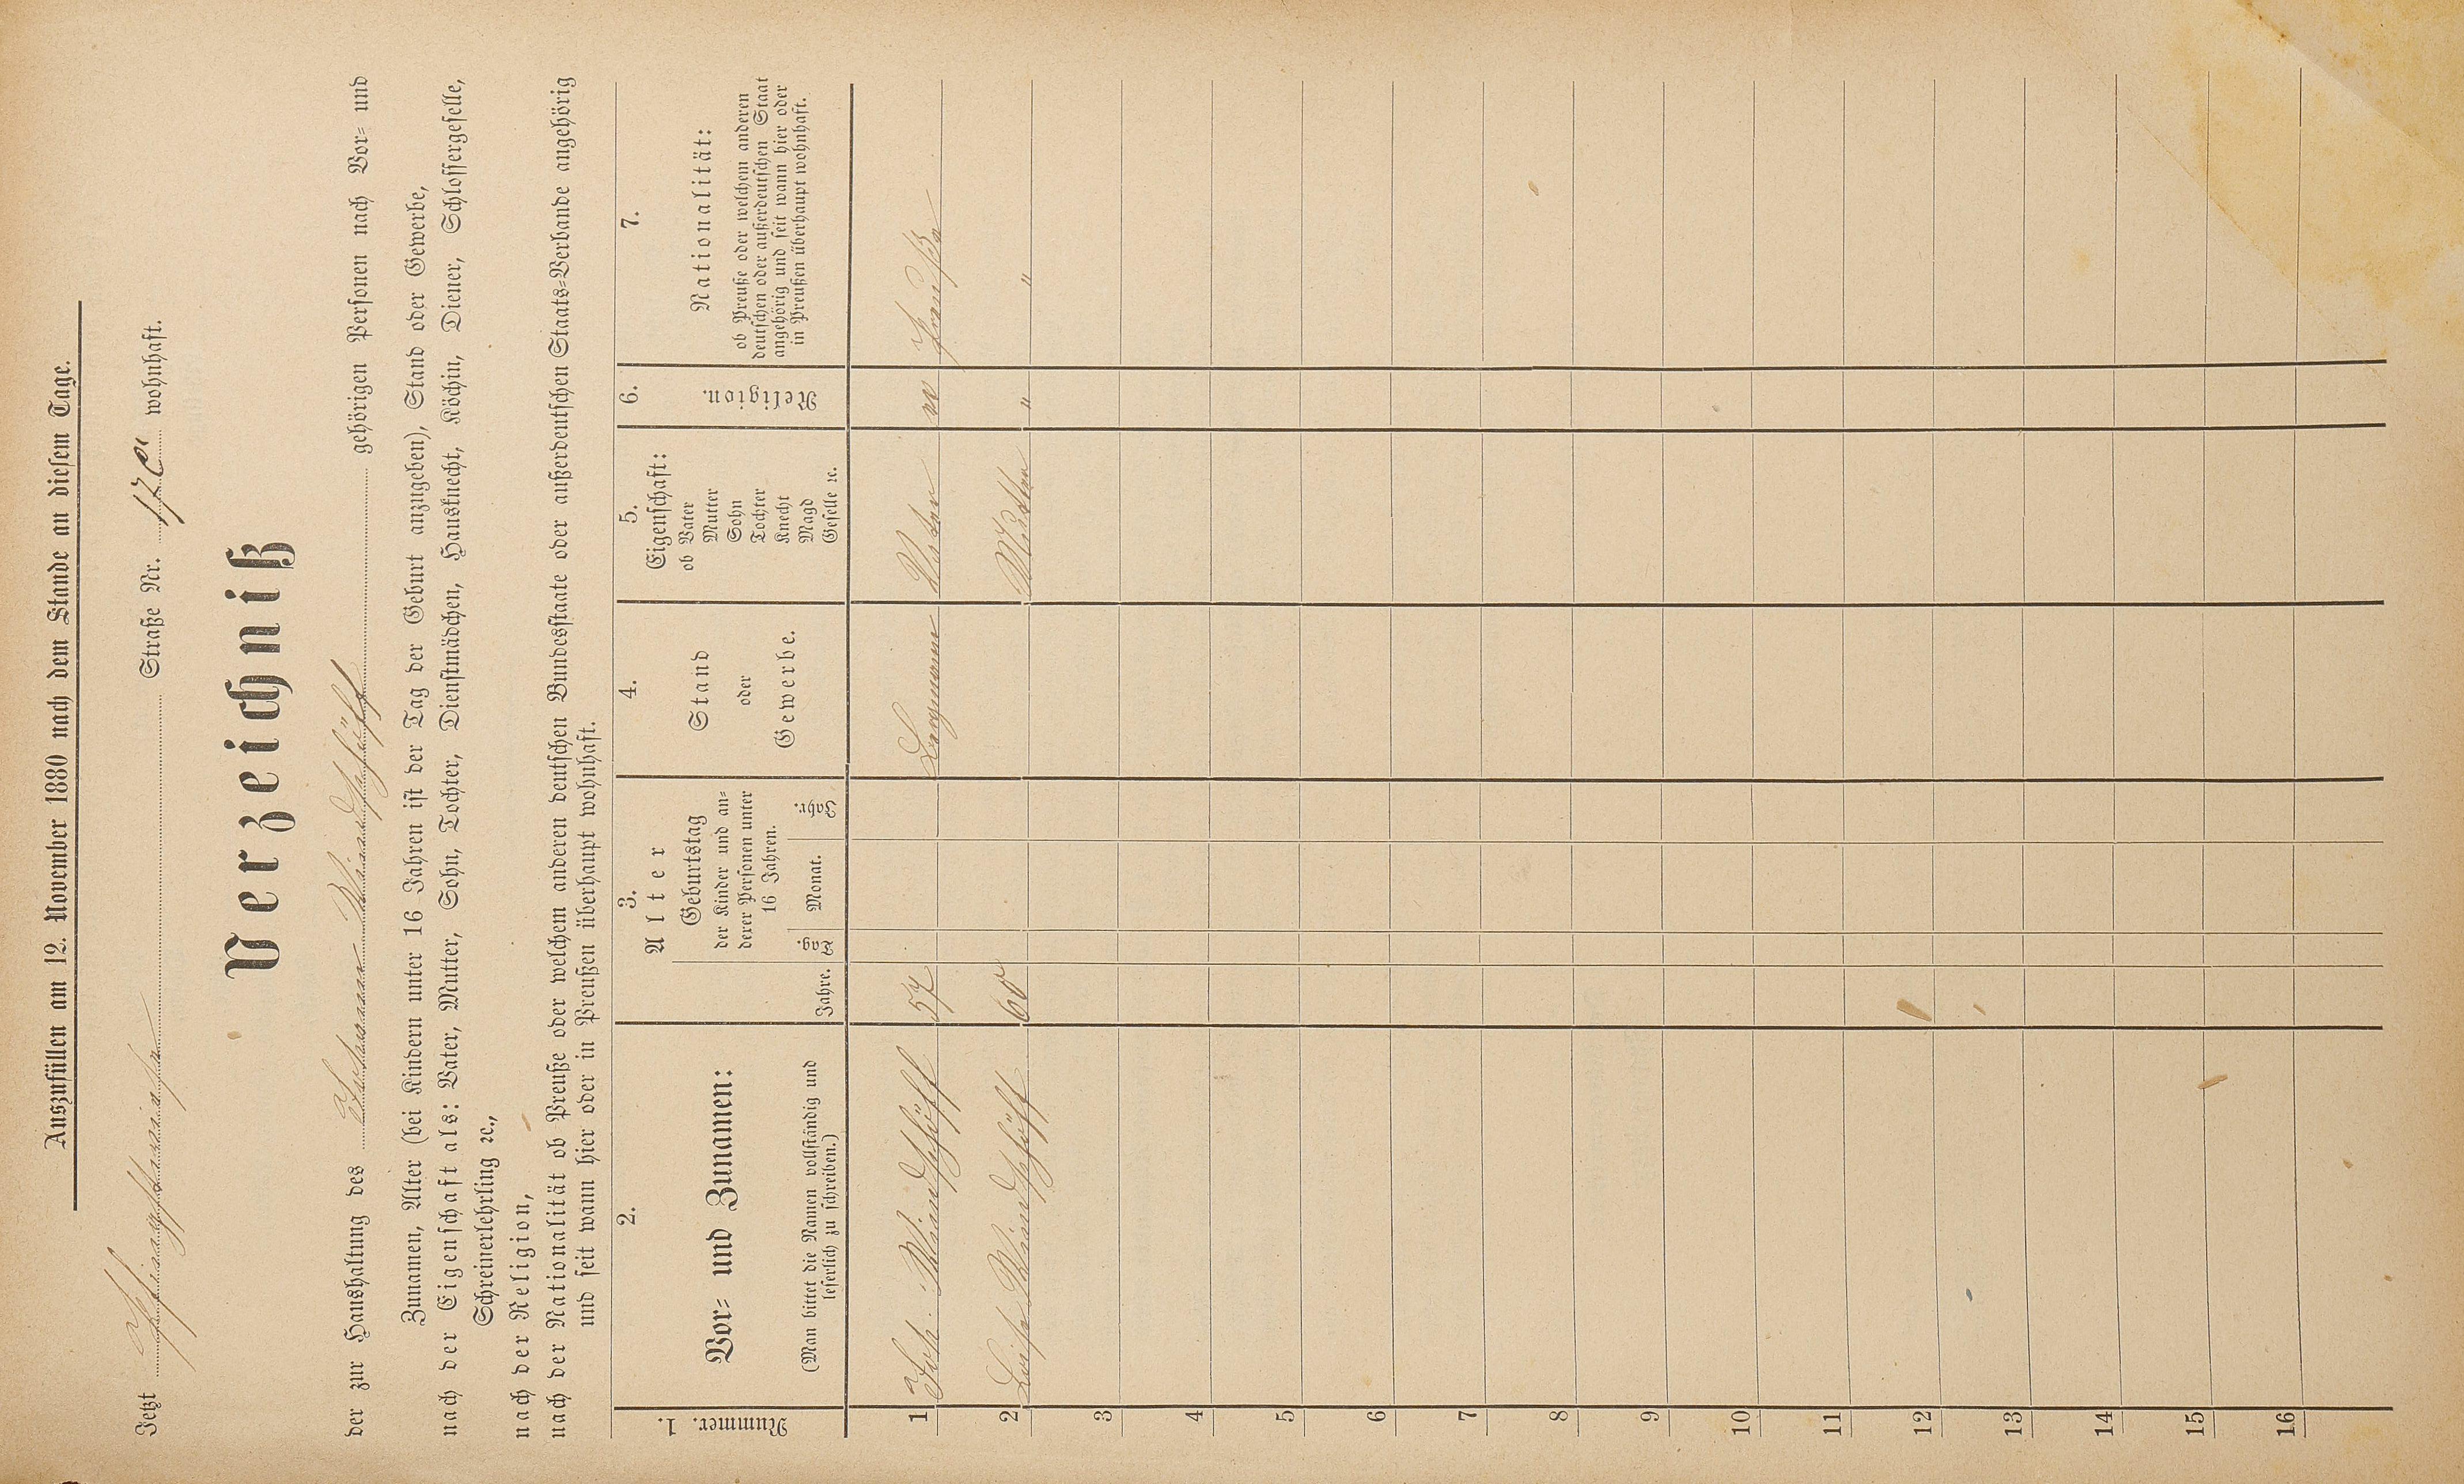 Auszufüllen am 12. November 1880 nach dem Stande an diesem Tage.
Jetzt Straße Nr. 17 C wohnhaft.
Verzeichniß
der zur Haushaltung des gehörigen Personen nach Vor- und
Zunamen, Alter (bei Kindern unter 16 Jahren ist der Tag der Geburt anzugeben), Stand oder Gewerbe,
nach der Eigenschaft als: Vater, Mutter, Sohn, Tochter, Dienstmädchen, Hausknecht, Köchin, Diener, Schlossergeselle,
Schreinerlehrling ꝛc.,
nach der Religion,
nach der Nationalität ob Preuße oder welchem anderen deutschen Bundesstaate oder außerdeutschen Staats-Verbande angehörig
und seit wann hier oder in Preußen überhaupt wohnhaft.
1.
Nummer.
2.
Vor- und Zunamen:
(Man bittet die Namen vollständig und
leserlich zu schreiben.)
3.
Alter
Jahre.
Geburtstag
der Kinder und an-
derer Personen unter
16 Jahren.
Tag. Monat. Jahr.
4.
Stand
oder
Gewerbe.
5.
Eigenschaft:
ob Vater
Mutter
Sohn
Tochter
Knecht
Magd
Geselle ꝛc.
6.
Religion.
7.
Nationalität:
ob Preuße oder welchem anderen
deutschen oder außerdeutschen Staat
angehörig und seit wann hier oder
in Preußen überhaupt wohnhaft.
1 Joh. 57 Bergmann Vater Preuße
2 Luise 60 Mutter " "
3
4
5
6
7
8
9
10
11
12
13
14
15
16